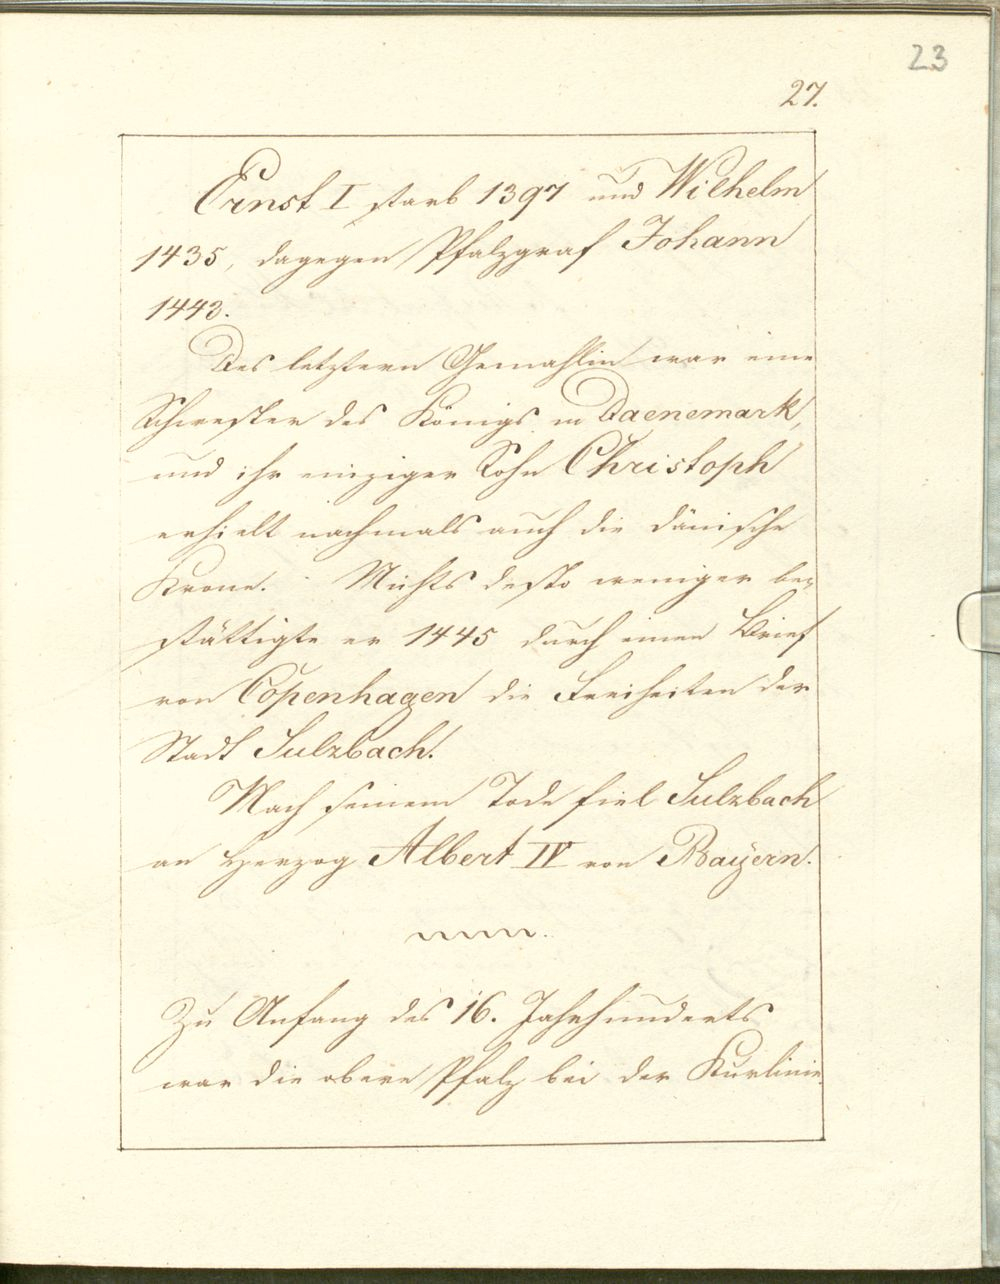 23
27.
Ernst I starb 1397 und Wilhelm
1435, dagegen Pfalzgraf Johann
1443.
Des letztern Gemahlin war eine
Schwester des Königs in Daenemark,
und ihr einziger Sohn Christoph
erhielt nachmals auch die dänische
Krone. Nichts desto weniger be-
stättigte er 1445 durch einen Brief
von Copenhagen die Freiheiten der
Stadt Sulzbach.
Nach seinem Tode fiel Sulzbach
an Herzog Albert IV von Bayern.
Zu Anfang des 16. Jahrhunderts
war die obere Pfalz bei der Kurlinie.